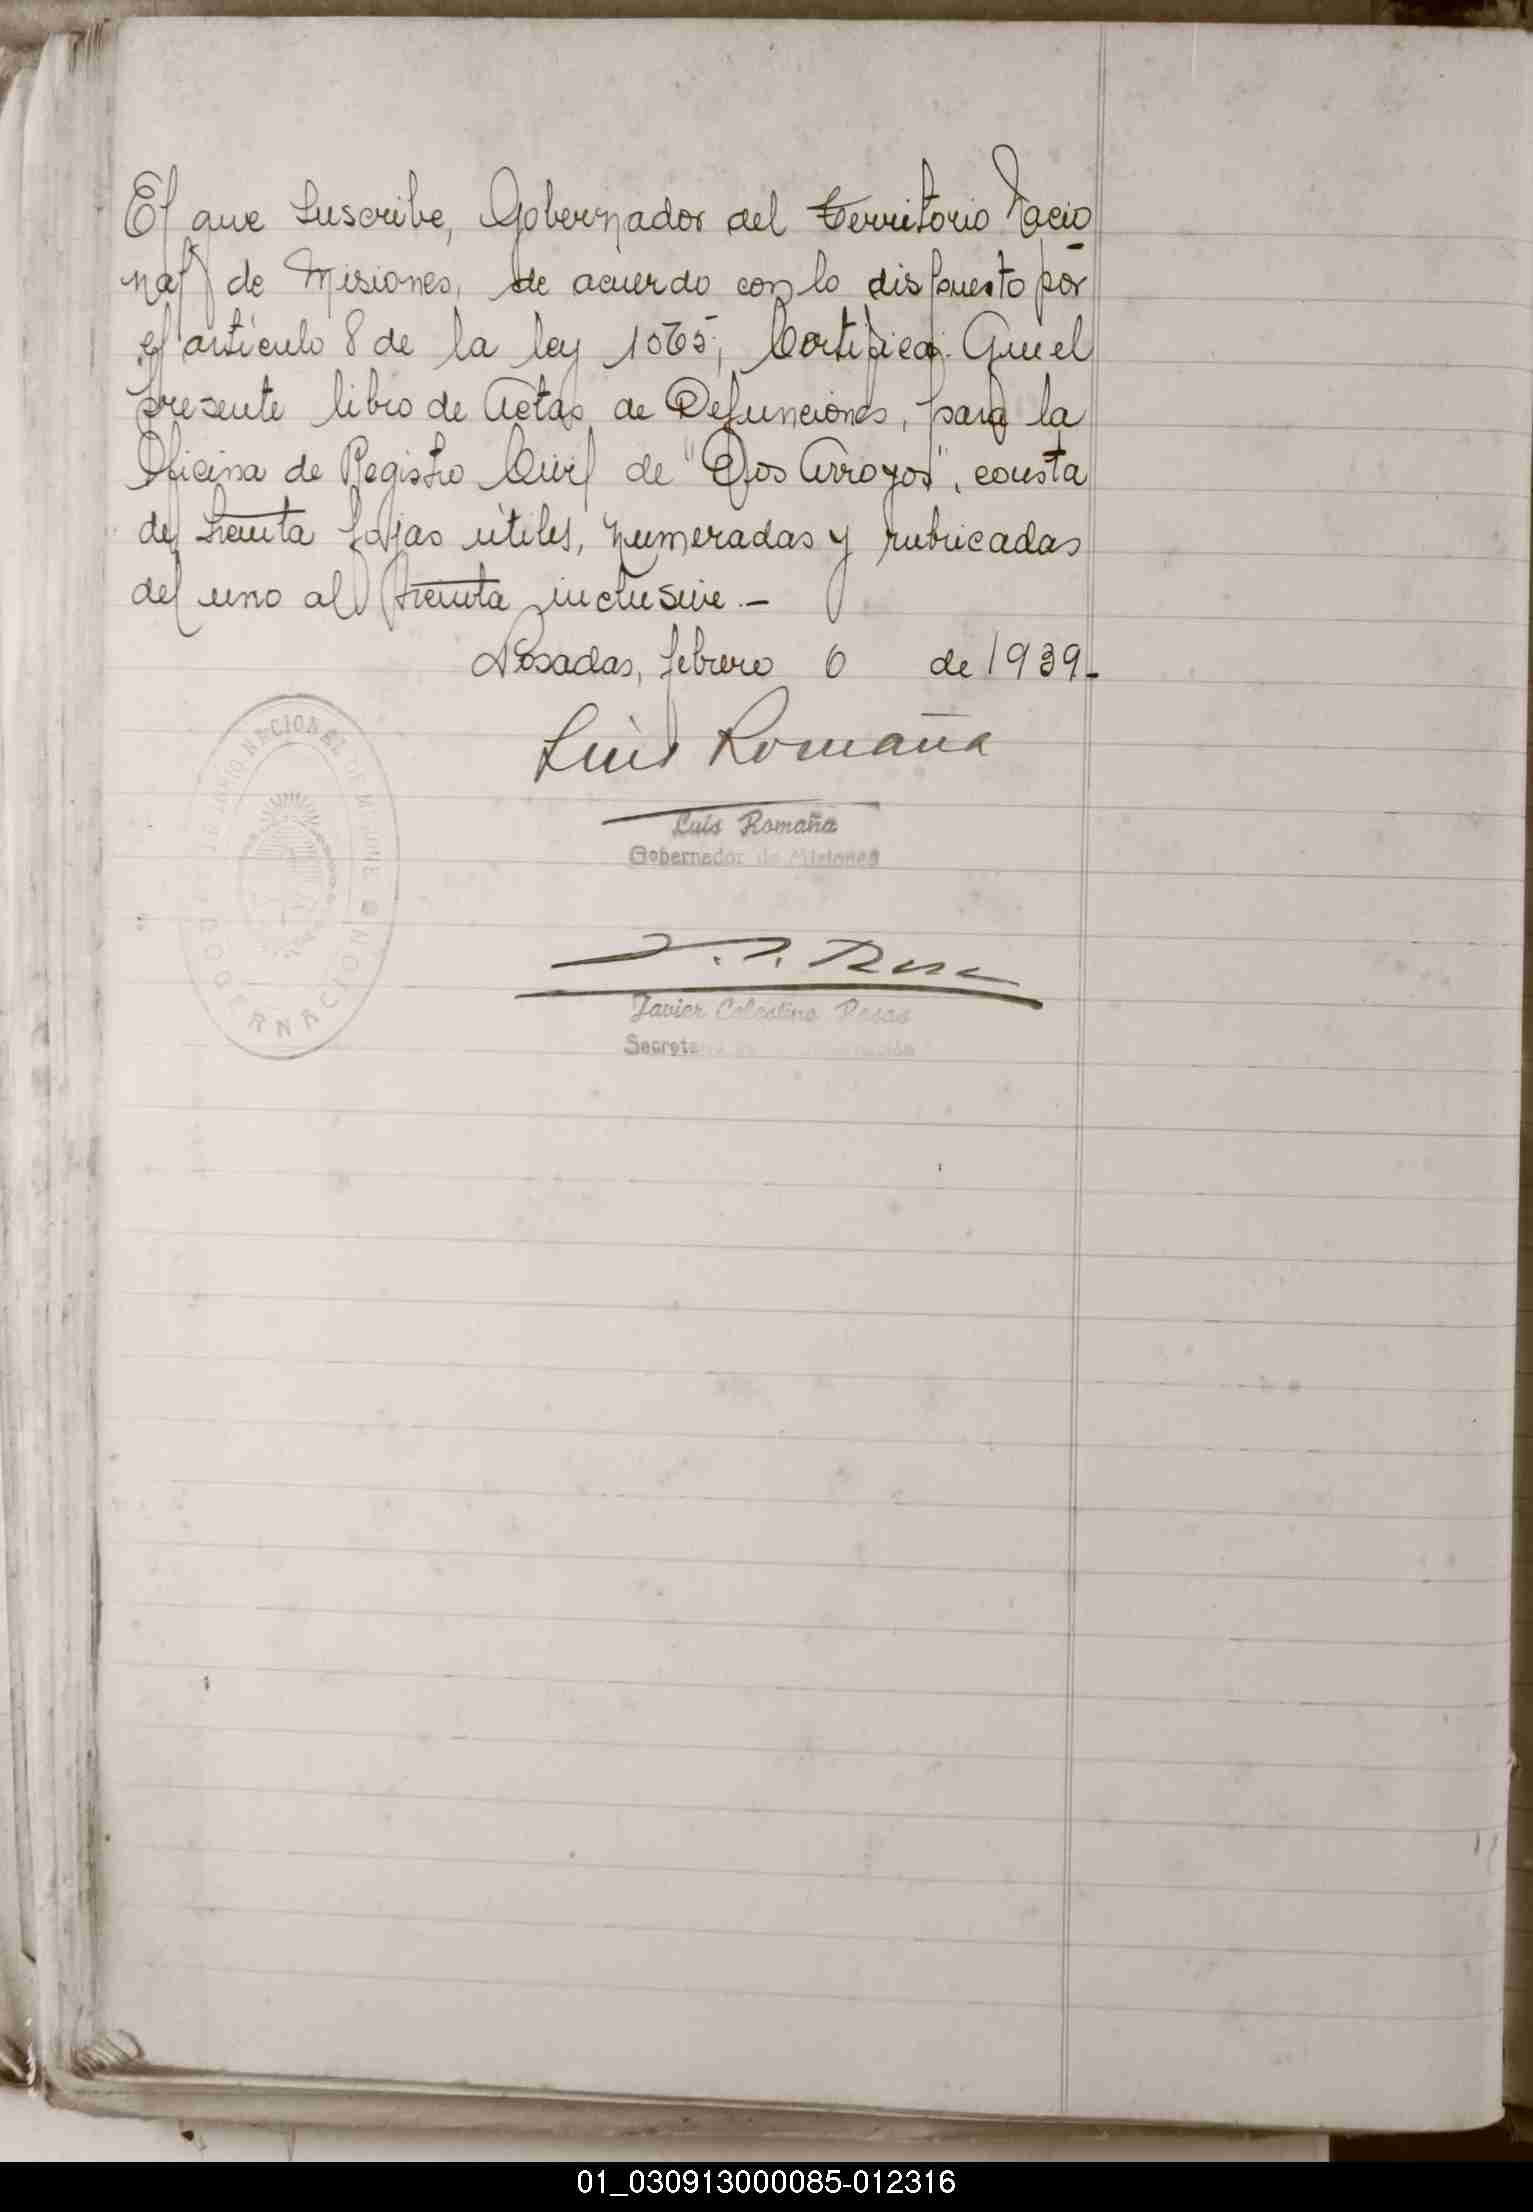 El que suscribe, Gobernador del Territorio Nacio
nal de Misiones, de acuerdo con lo dispuesto por
el artículo 8 de la ley 1565, Certifica: Que el
presente libro de Actas de Defunciones, para la
Oficina de Registro Civil de "Dos Arroyos", consta
de treinta fojas útiles, numeradas y rubricadas
del uno al treinta inclusive.-
Posadas, febrero 6 de 1939-
Luis Romaña
Luis Romaña
Gobernador de Misiones
Javier Celestino Rosas
GOBERNACION
NACIONAL DE MISIONES
01_030913000085-012316